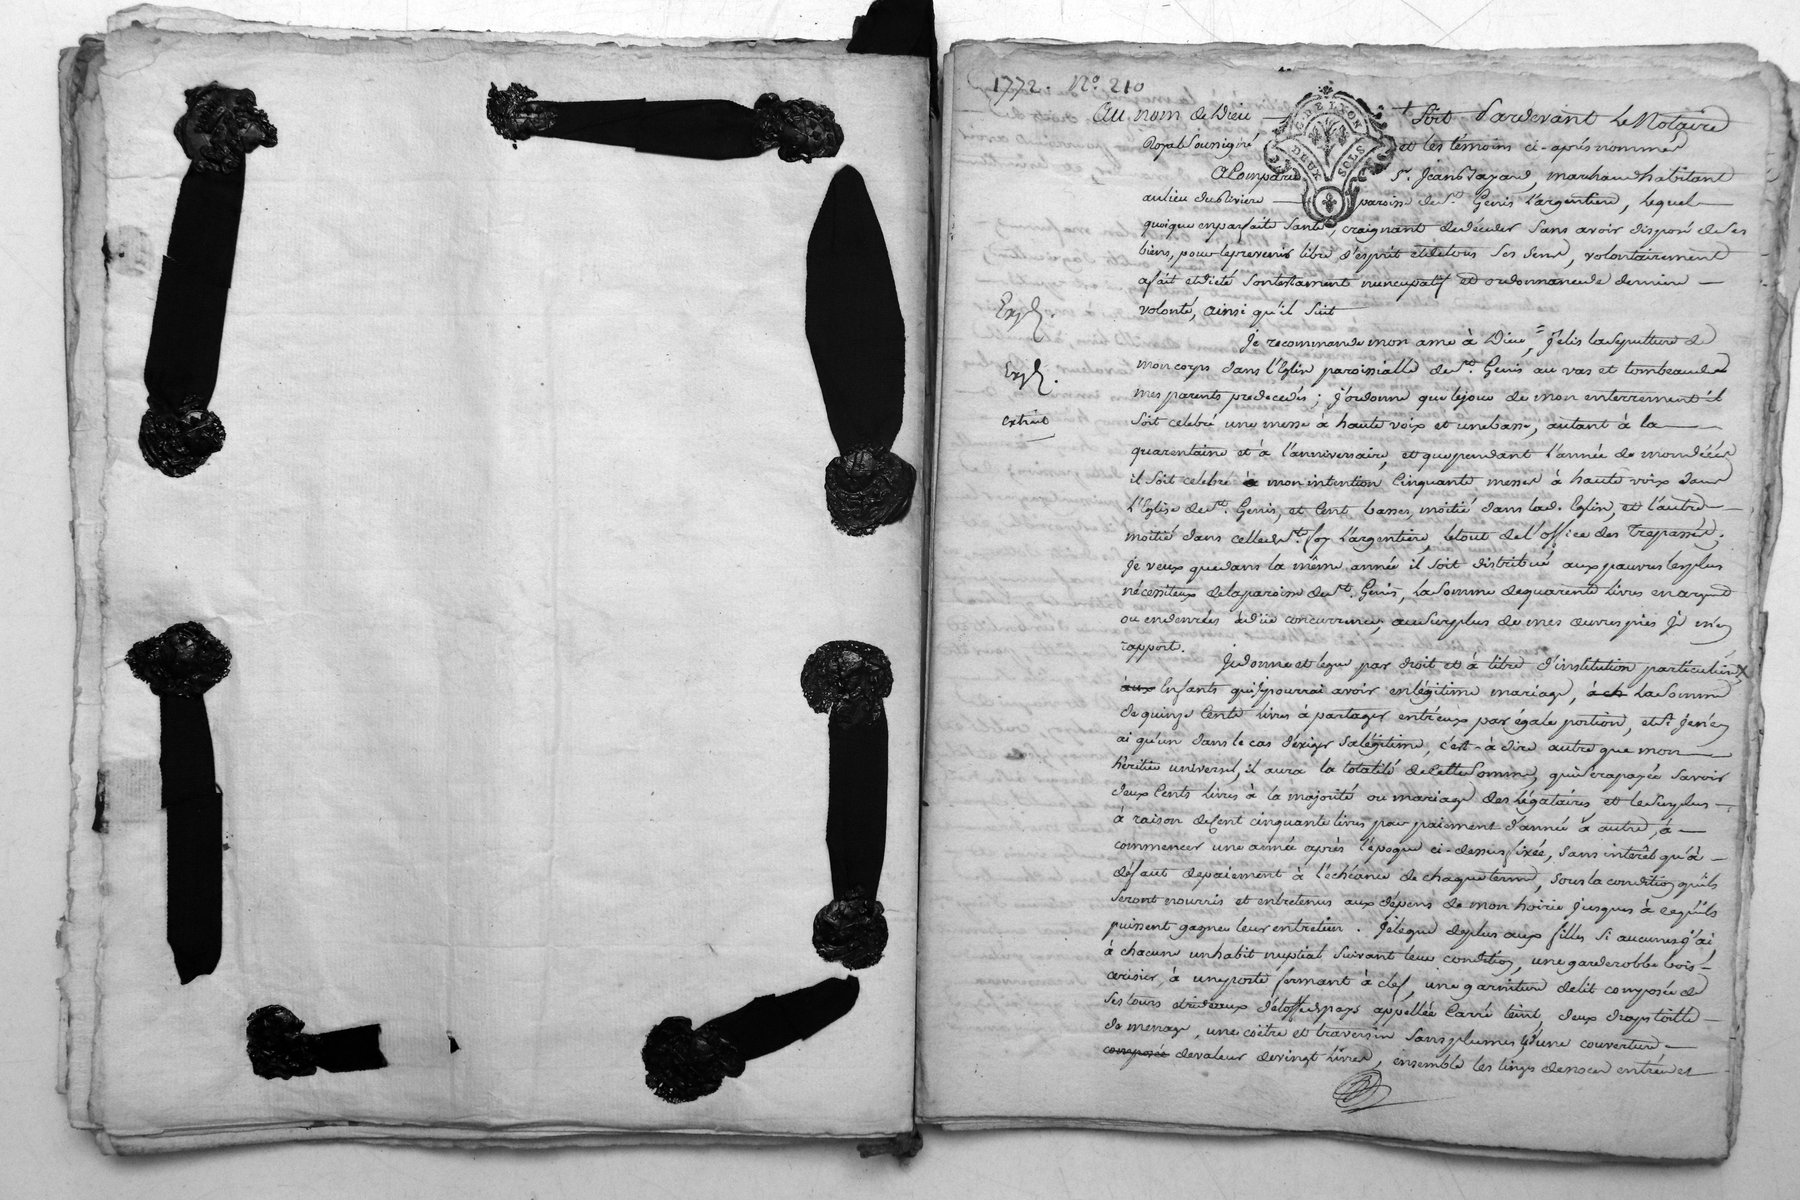 1772. N.º 210
G. DE LYON
DEUX SOLS
Au nom de Dieu soit Pardevant Le Notaire
Royal Soussigné et les témoins ci-après nommés
A Comparu S.r Jean marchand habitant
au lieu de paroisse de S.t Genis L'argentiere, Lequel
quoique en parfaite santé, craignant de décéder sans avoir disposé de ses
biens, pour le prevenir libre d'esprit et de tous ses sens, volontairement
a fait et dicté son testament nuncupatif et ordonnance de derniere
volonté, ainsi qu'il suit
Exp.
Je recommande mon ame à Dieu, J'élis la sepulture de
Exp.
mon corps dans l'Eglise paroissialle de S.t Genis au vas et tombeau de
mes parents predecedés; j'ordonne que le jour de mon enterrement il
extrait
soit celebré une messe à haute voix et une basse, autant à la
quarentaine et à l'anniversaire, et que pendant l'année de mon décès
il soit celebré à mon intention Cinquante messes à haute voix dans
L'Eglise de S.t Genis, et Cent basses, moitié dans lad. Eglise, et l'autre
moitié dans celle de S.te foy L'argentiere, le tout de l'office des Trepassés;
je veux que dans la même année il soit distribué aux pauvres les plus
nécessiteux de la paroisse de S.t Genis, La somme de quarente Livres en argent
ou en denrées à due concurrence, au surplus de mes œuvres pies Je m'en
rapport.
Je donne et legue par droit et à titre d'institution particuliere
aux Enfants que je pourrai avoir en légitime mariage, à ch La somme
de quinze Cents Livres à partager entr'eux par égale portion, et si je n'en
ai qu'un dans le cas d'exiger sa légitime, c'est-à-dire autre que mon
héritier universel, il aura la totalité de cette somme, qui sera payée savoir
deux Cents Livres à la majorité ou mariage des Légataires et le surplus
à raison de Cent cinquante livres pour paiement d'année à autre, à
commencer une année après l'époque ci-dessus fixée, sans interêt qu'à
défaut de paiement à l'échéance de chaque terme, sous la condition qu'ils
seront nourris et entretenus aux dépens de mon hoirie jusques à ce qu'ils
puissent gagner leur entretien. Je legue de plus aux filles si aucunes j'ai,
à chacune un habit nuptial suivant leur condition, une garderobbe bois
cerisier, à une porte fermant à clef, une garniture de lit composée de
ses tours et rideaux d'étoffe de pays appellée Carré teint, deux draps toille
de menage, une coëtre et traversin sans plumes, d'une couverture
composée de valeur de vingt Livres, ensemble les linges de noces entrées et